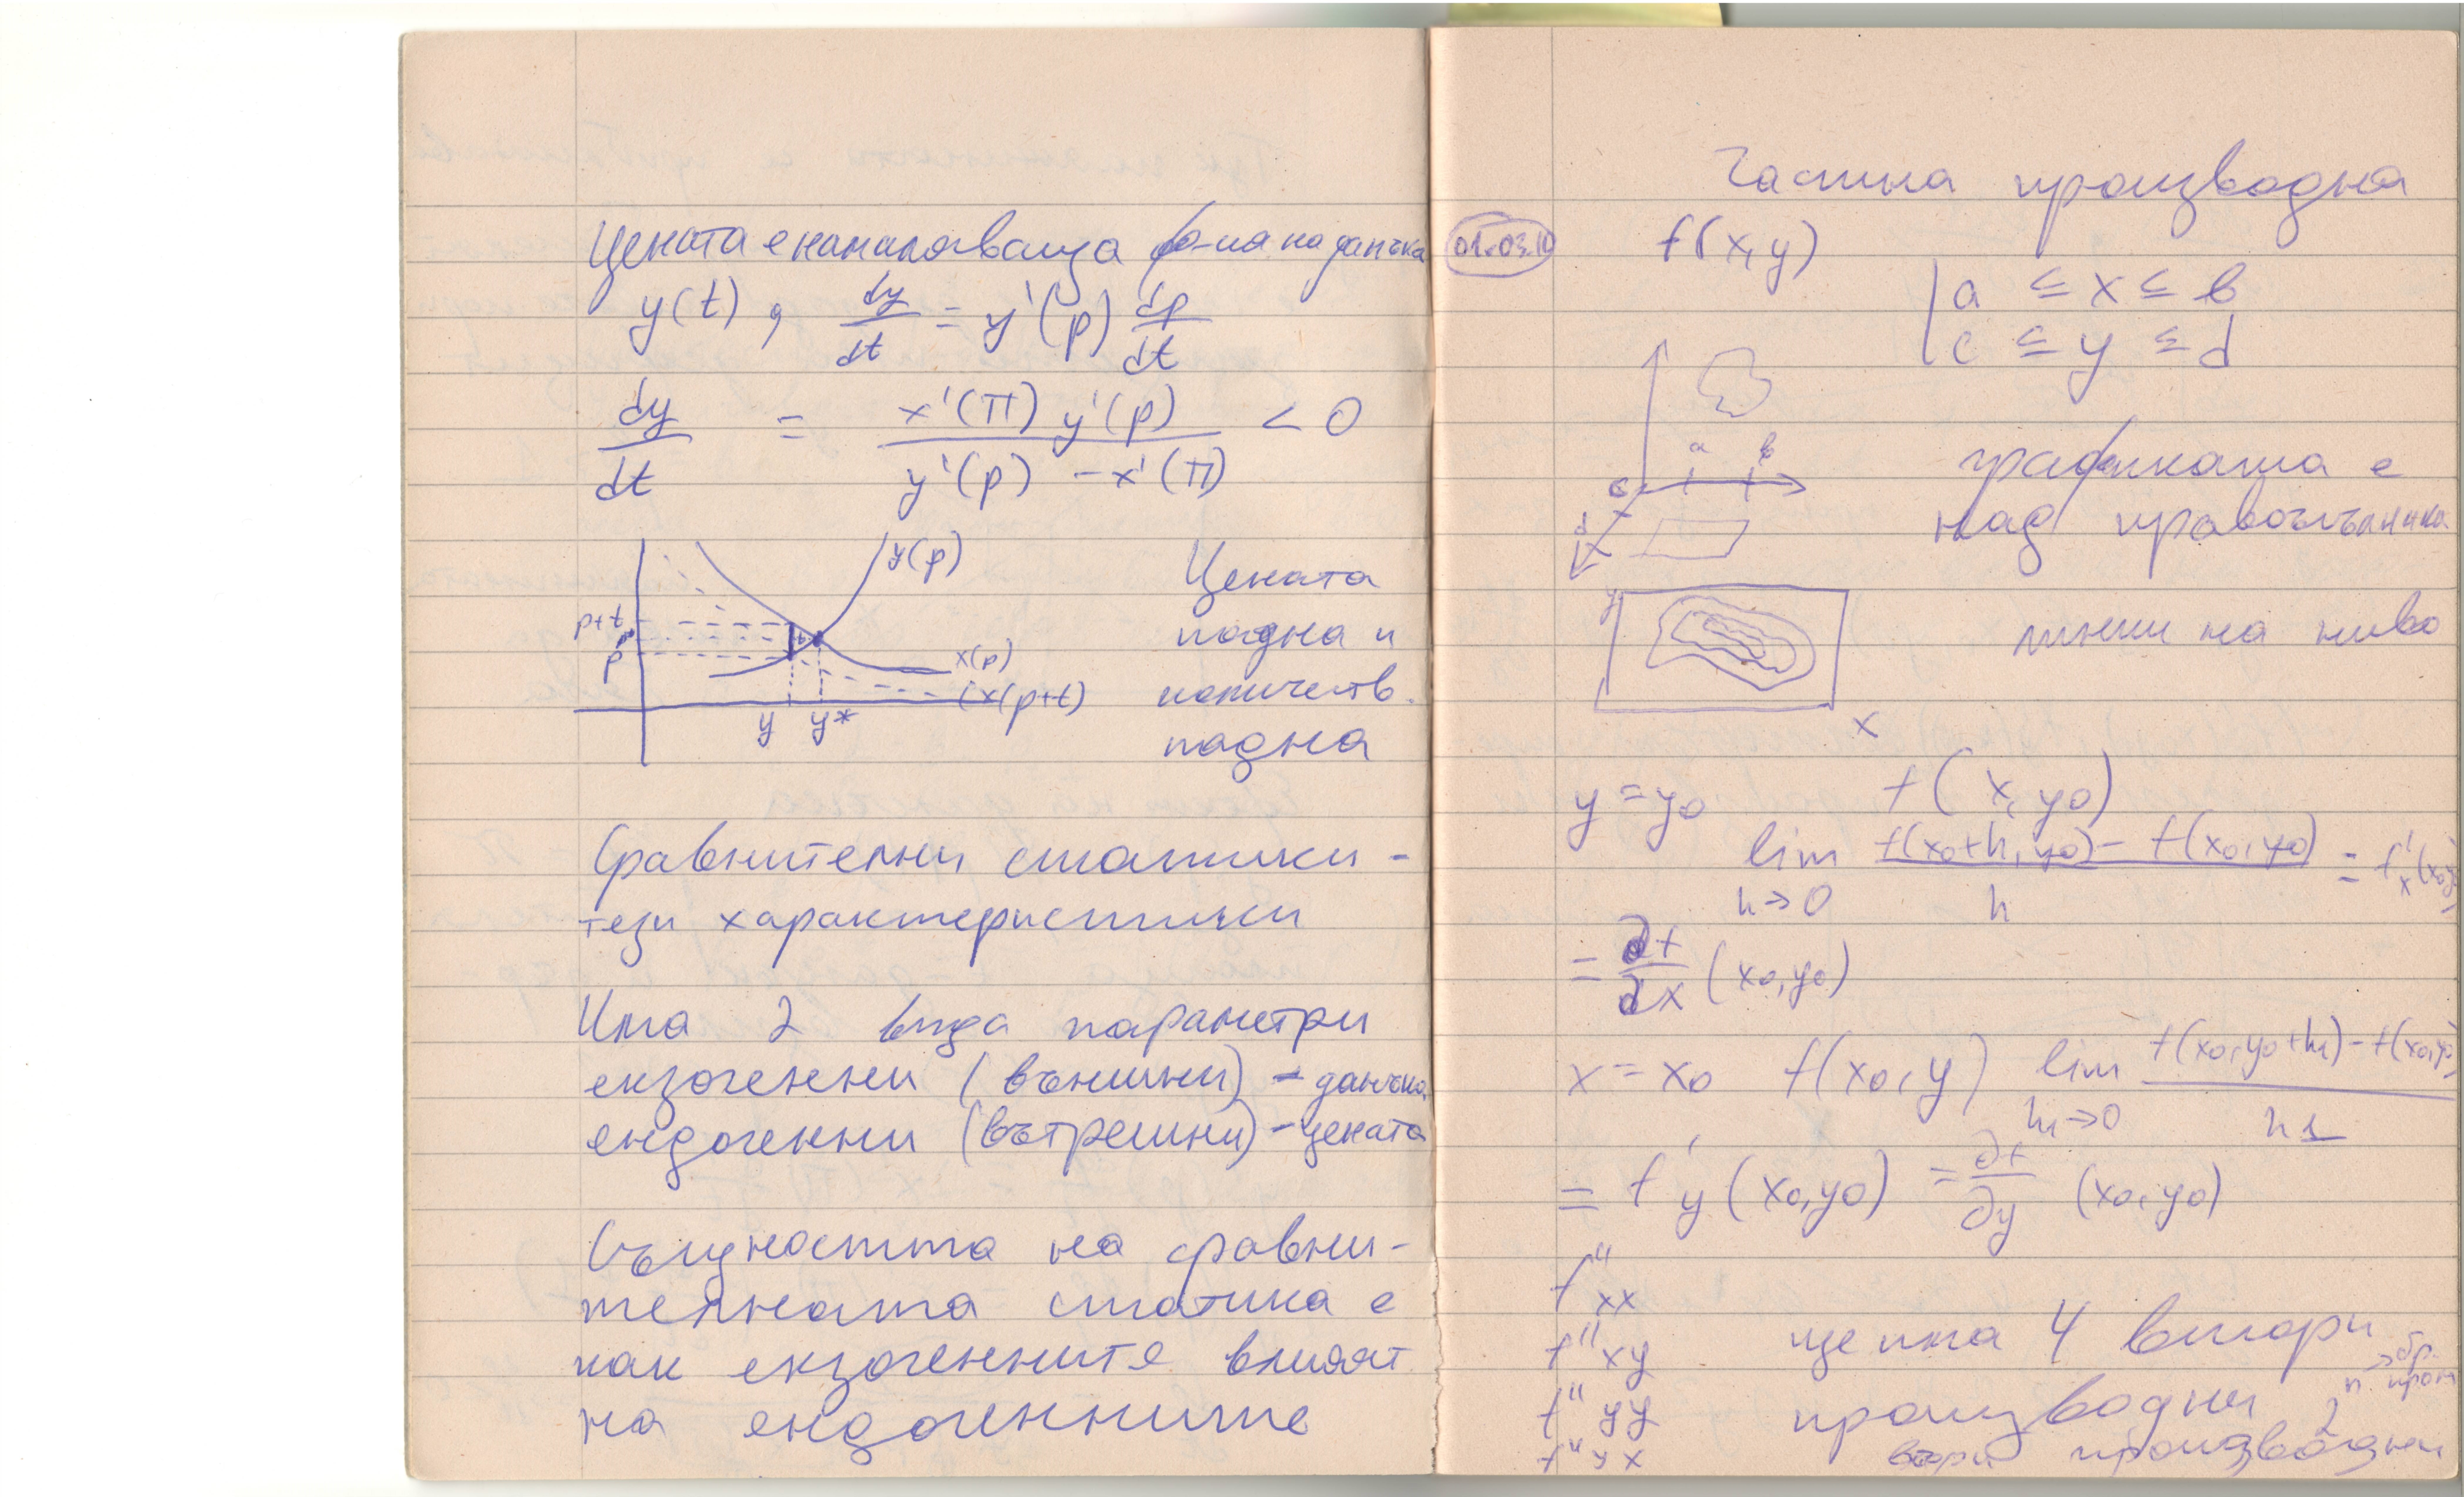 Цената е намаляваща ф-ия на данъка
y(t), dy/dt = y'(p) dp/dt
dy/dt = x'(П) y'(p) / y'(p) - x'(П) < 0
y(p)
p+t
p*
p
t
x(p)
(x(p+t)
y y*
Цената
падна и
количеств.
падна
Сравнителни статики -
тези характеристики
Има 2 вида параметри
екзогенни (външни) - данъка
ендогенни (вътрешни) - цената
Същността на сравни-
телната статика е
как екзогенните влияят
на ендогенните
Частна производна
01.03.10
f(x,y)
a ≤ x ≤ b
c ≤ y ≤ d
a b
c
d
графиката е
над правоъгълника
y
x
линии на ниво
y = y0 f(x, y0)
lim h→0 f(x0+h, y0) - f(x0, y0) / h = f'x(x0,y0)
= ∂f/∂x (x0,y0)
x = x0 f(x0,y) lim h1→0 f(x0,y0+h1) - f(x0,y0) / h1
= f'y (x0,y0) = ∂f/∂y (x0,y0)
f''xx
f''xy ще има 4 втори
f''yy производни
f''yx втори производни
2^n → бр. пром